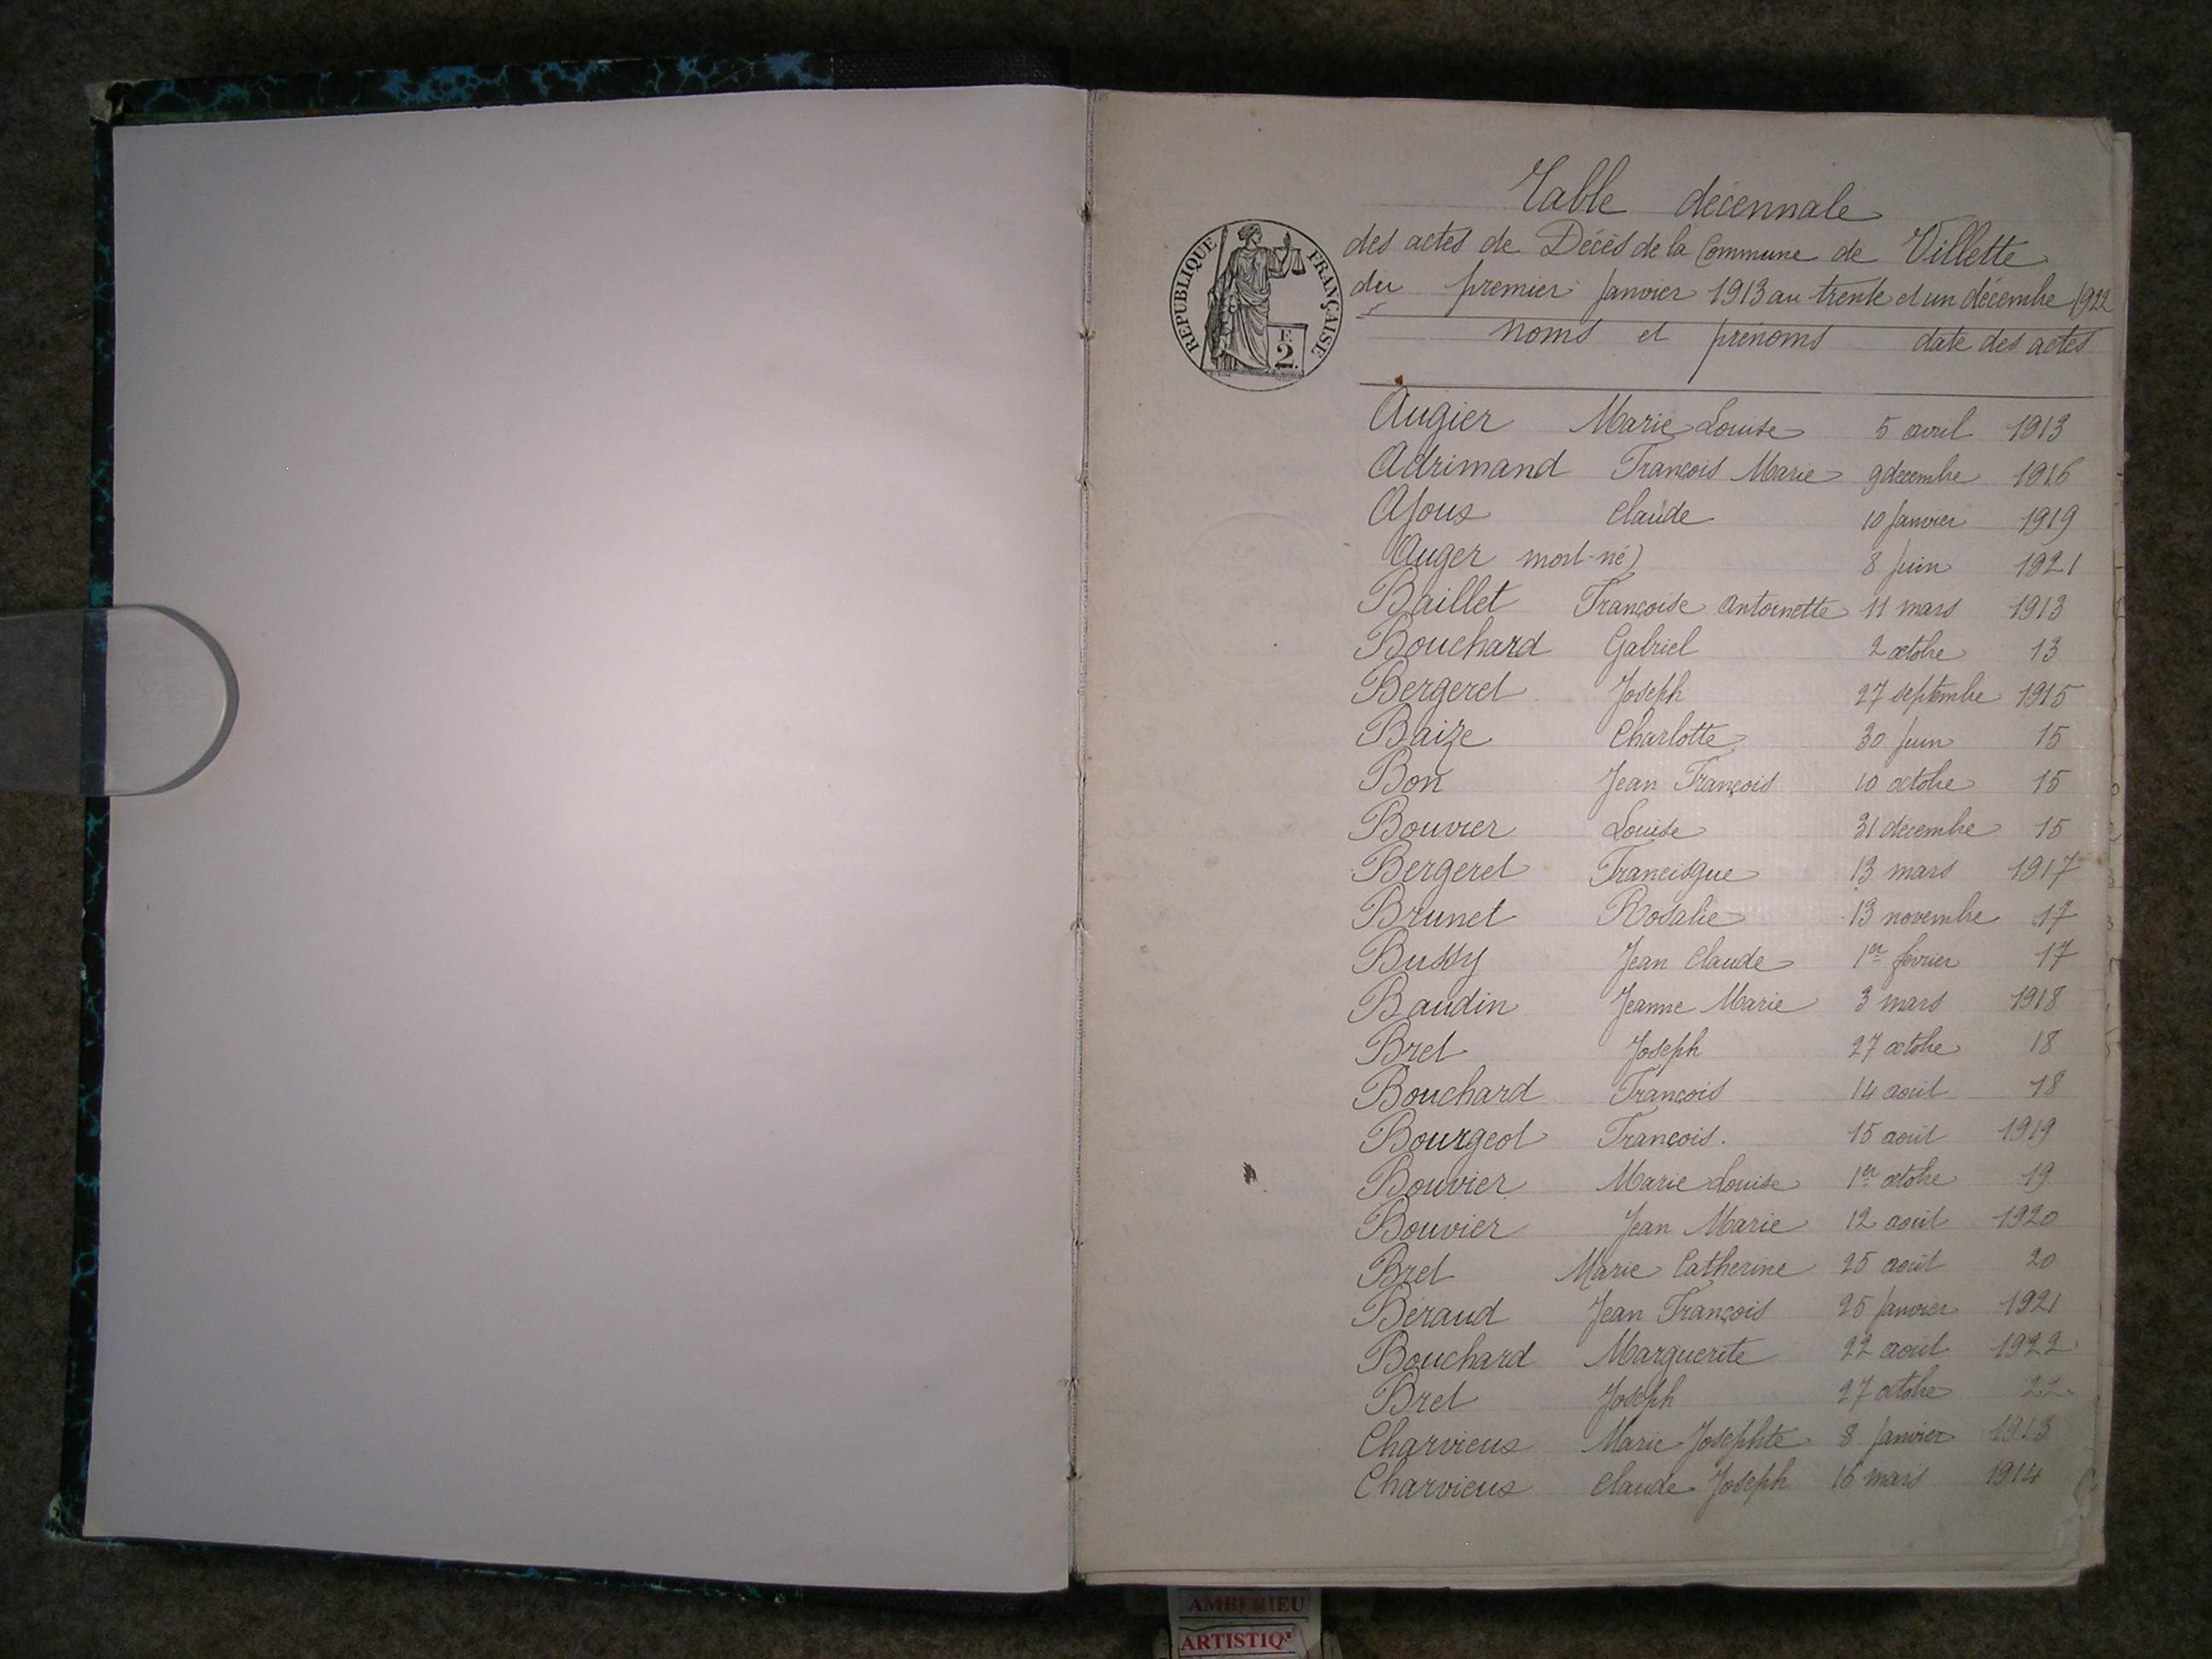 Table décennale
des actes de Décès de la Commune de Villette
du premier Janvier 1913 au trente et un décembre 1922
RÉPUBLIQUE FRANÇAISE
F.
2.
noms et prénoms date des actes
Augier Marie Louise 5 avril 1913
Adrimand François Marie 9 décembre 1916
Ajoux Claude 10 Janvier 1919
Auger mort-né) 8 Juin 1921
Baillet Françoise Antoinette 11 mars 1913
Bouchard Gabriel 2 octobre 13
Bergeret Joseph 27 septembre 1915
Baize Charlotte 30 Juin 15
Bon Jean François 10 octobre 15
Bouvier Louise 31 décembre 15
Bergeret Francisque 13 mars 1917
Brunet Rosalie 13 novembre 17
Bussy Jean Claude 1er février 17
Baudin Jeanne Marie 3 mars 1918
Bret Joseph 27 octobre 18
Bouchard François 14 août 18
Bourgeot François. 15 août 1919
Bouvier Marie Louise 1er octobre 19
Bouvier Jean Marie 12 août 1920
Bret Marie Catherine 25 août 20
Béraud Jean François 25 Janvier 1921
Bouchard Marguerite 22 août 1922
Bret Joseph 27 octobre 22
Charvieux Marie Josephte 8 Janvier 1913
Charvieux Claude Joseph 16 mars 1914
AMBERIEU
ARTISTIQ